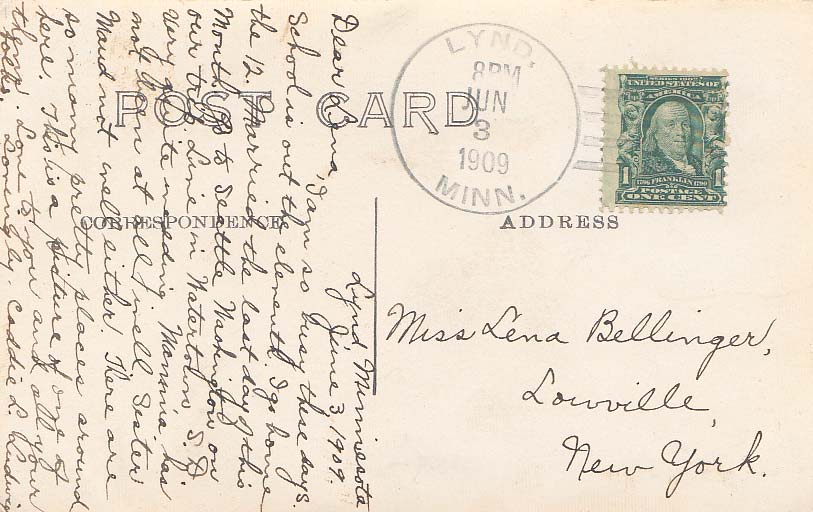 POST CARD
CORRESPONDENCE
ADDRESS
LYND,
8PM
JUN
3
1909
MINN.
SERIES 1902
UNITED STATES OF
AMERICA
1 1
1706 FRANKLIN 1790
POSTAGE
ONE CENT
Lynd Minnesota
June 3, 1909.
Dear Lena, I am so busy these days.
School is out the eleventh. I go home
the 12. Married the last day of this
Month go to Seattle Washington on
our trip. Live in Watertown S. D
Very quite wedding Mamma has
not been at all well. Sister
Maud not well either. There are
so many pretty places around
here. This is a picture of one of
them. Love to you and all your
folks. Lovingly. Caddie L. Ludwig
Miss Lena Bellinger,
Lowville,
New York.